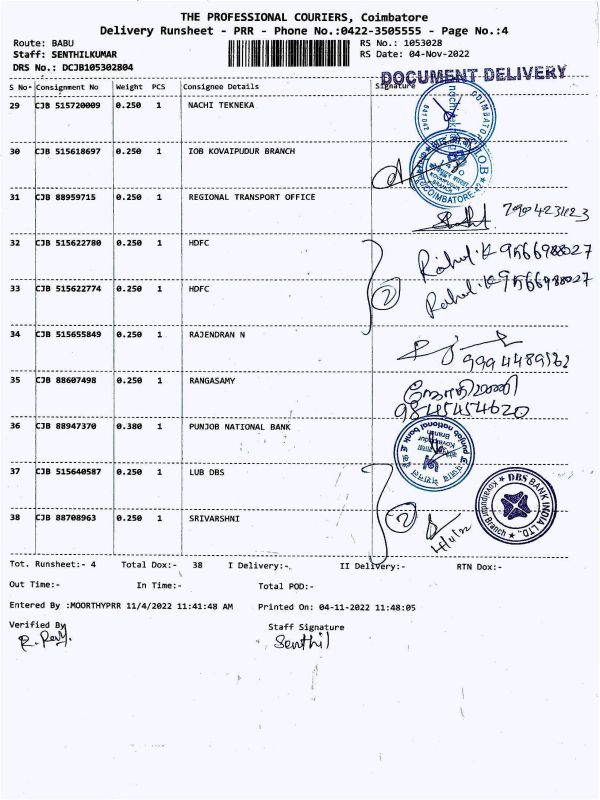 THE PROFESSIONAL COURIERS, Coimbatore
Delivery Runsheet - PRR - Phone No.:0422-3505555 - Page No.:4
Route: BABU RS No.: 1053028
Staff: SENTHILKUMAR RS Date: 04-Nov-2022
DRS No.: DCJB105302804
DOCUMENT DELIVERY
S No- Consignment No Weight PCS Consignee Details Signature
29 CJB 515720009 0.250 1 NACHI TEKNEKA
30 CJB 515618697 0.250 1 IOB KOVAIPUDUR BRANCH
I.O.B
COIMBATORE
31 CJB 88959715 0.250 1 REGIONAL TRANSPORT OFFICE
32 CJB 515622780 0.250 1 HDFC
Rahul.K 9566988027
33 CJB 515622774 0.250 1 HDFC
2
Rahul.K 9566988027
34 CJB 515655849 0.250 1 RAJENDRAN N
35 CJB 88607498 0.250 1 RANGASAMY
ஜோதிமணி
9845454620
36 CJB 88947370 0.380 1 PUNJOB NATIONAL BANK
punjab national bank
Kovaipudur
Branch
37 CJB 515640587 0.250 1 LUB DBS
DBS BANK INDIA LTD.,
Kovaipudur Branch
38 CJB 88708963 0.250 1 SRIVARSHNI
2
Tot. Runsheet:- 4 Total Dox:- 38 I Delivery:-. II Delivery:- RTN Dox:-
Out Time:- In Time:- Total POD:-
Entered By :MOORTHYPRR 11/4/2022 11:41:48 AM Printed On: 04-11-2022 11:48:05
Verified By Staff Signature
Senthil